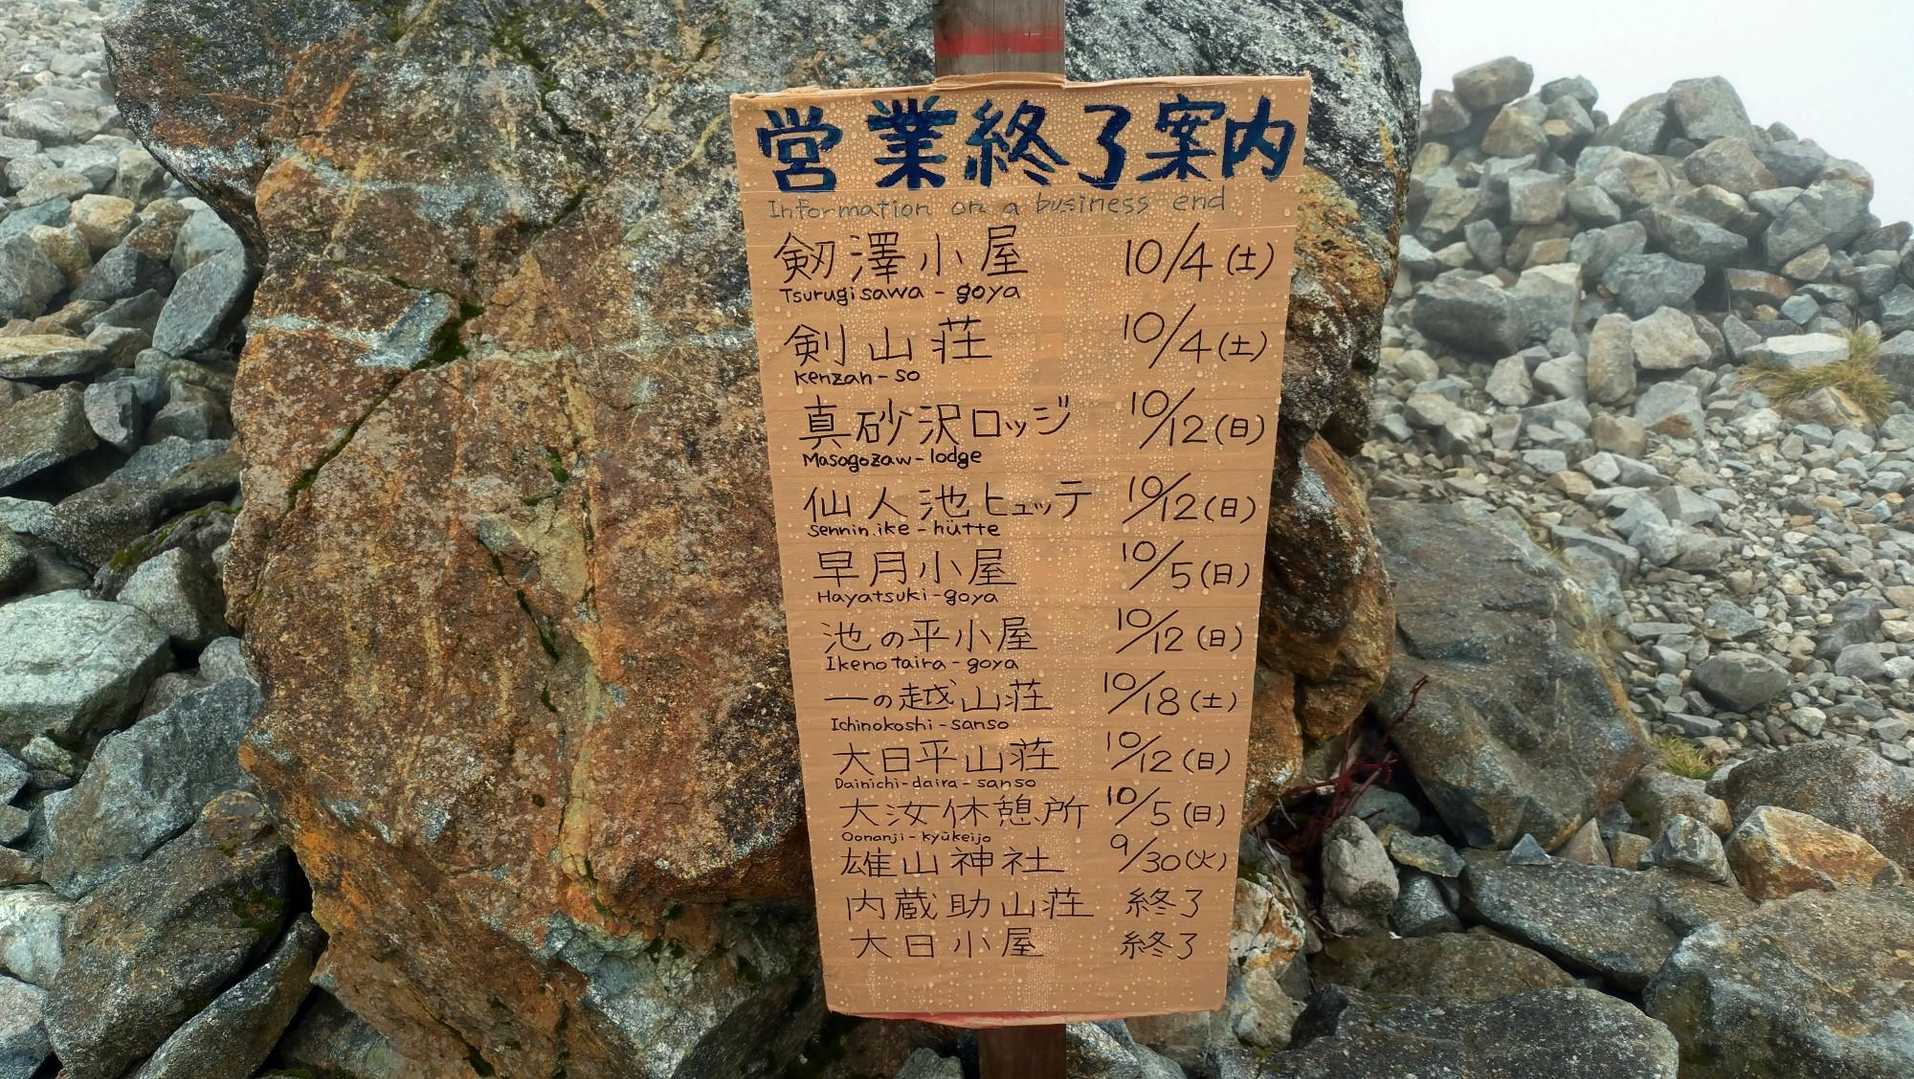 営業終了案内
Information on a business end
剱澤小屋 10/4(土)
Tsurugisawa-goya
剣山荘 10/4(土)
Kenzan-so
真砂沢ロッジ 10/12(日)
Masagozaw-lodge
仙人池ヒュッテ 10/12(日)
Sennin.ike-hütte
早月小屋 10/5(日)
Hayatsuki-goya
池の平小屋 10/12(日)
Ikenotaira-goya
一の越山荘 10/18(土)
Ichinokoshi-sanso
大日平山荘 10/12(日)
Dainichi-daira-sanso
大汝休憩所 10/5(日)
Oonanji-kyūkeijo
雄山神社 9/30(火)
内蔵助山荘 終了
大日小屋 終了